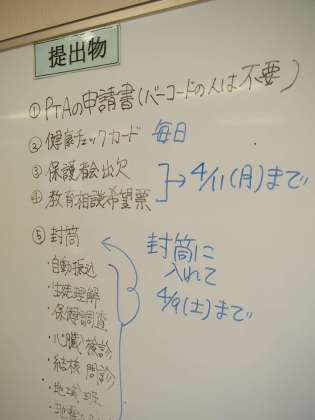 提出物
① PTAの申請書(バーコードの人は不要)
② 健康チェックカード 毎日
③ 保護者会出欠
④ 教育相談希望票
→4/11(月)まで
⑤ 封筒
封筒に
入れて
4/9(土)まで
・自動振込
・生徒理解
・保健調査
・心臓検診
・結核問診
・地域班